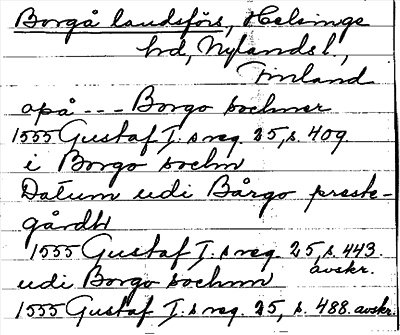 Borgå landsförs, Helsinge
hd, Nylandsl.,
Finland
apå --- Borgo sochner
1555 Gustaf I:s reg. 25, s. 409
i Borgo sochn
Datum udi Bårgo preste-
gårdh
1555 Gustaf I:s reg. 25, s. 443.
avskr.
udi Borgo sochnn
1555 Gustaf I:s reg. 25, s. 488. avskr.